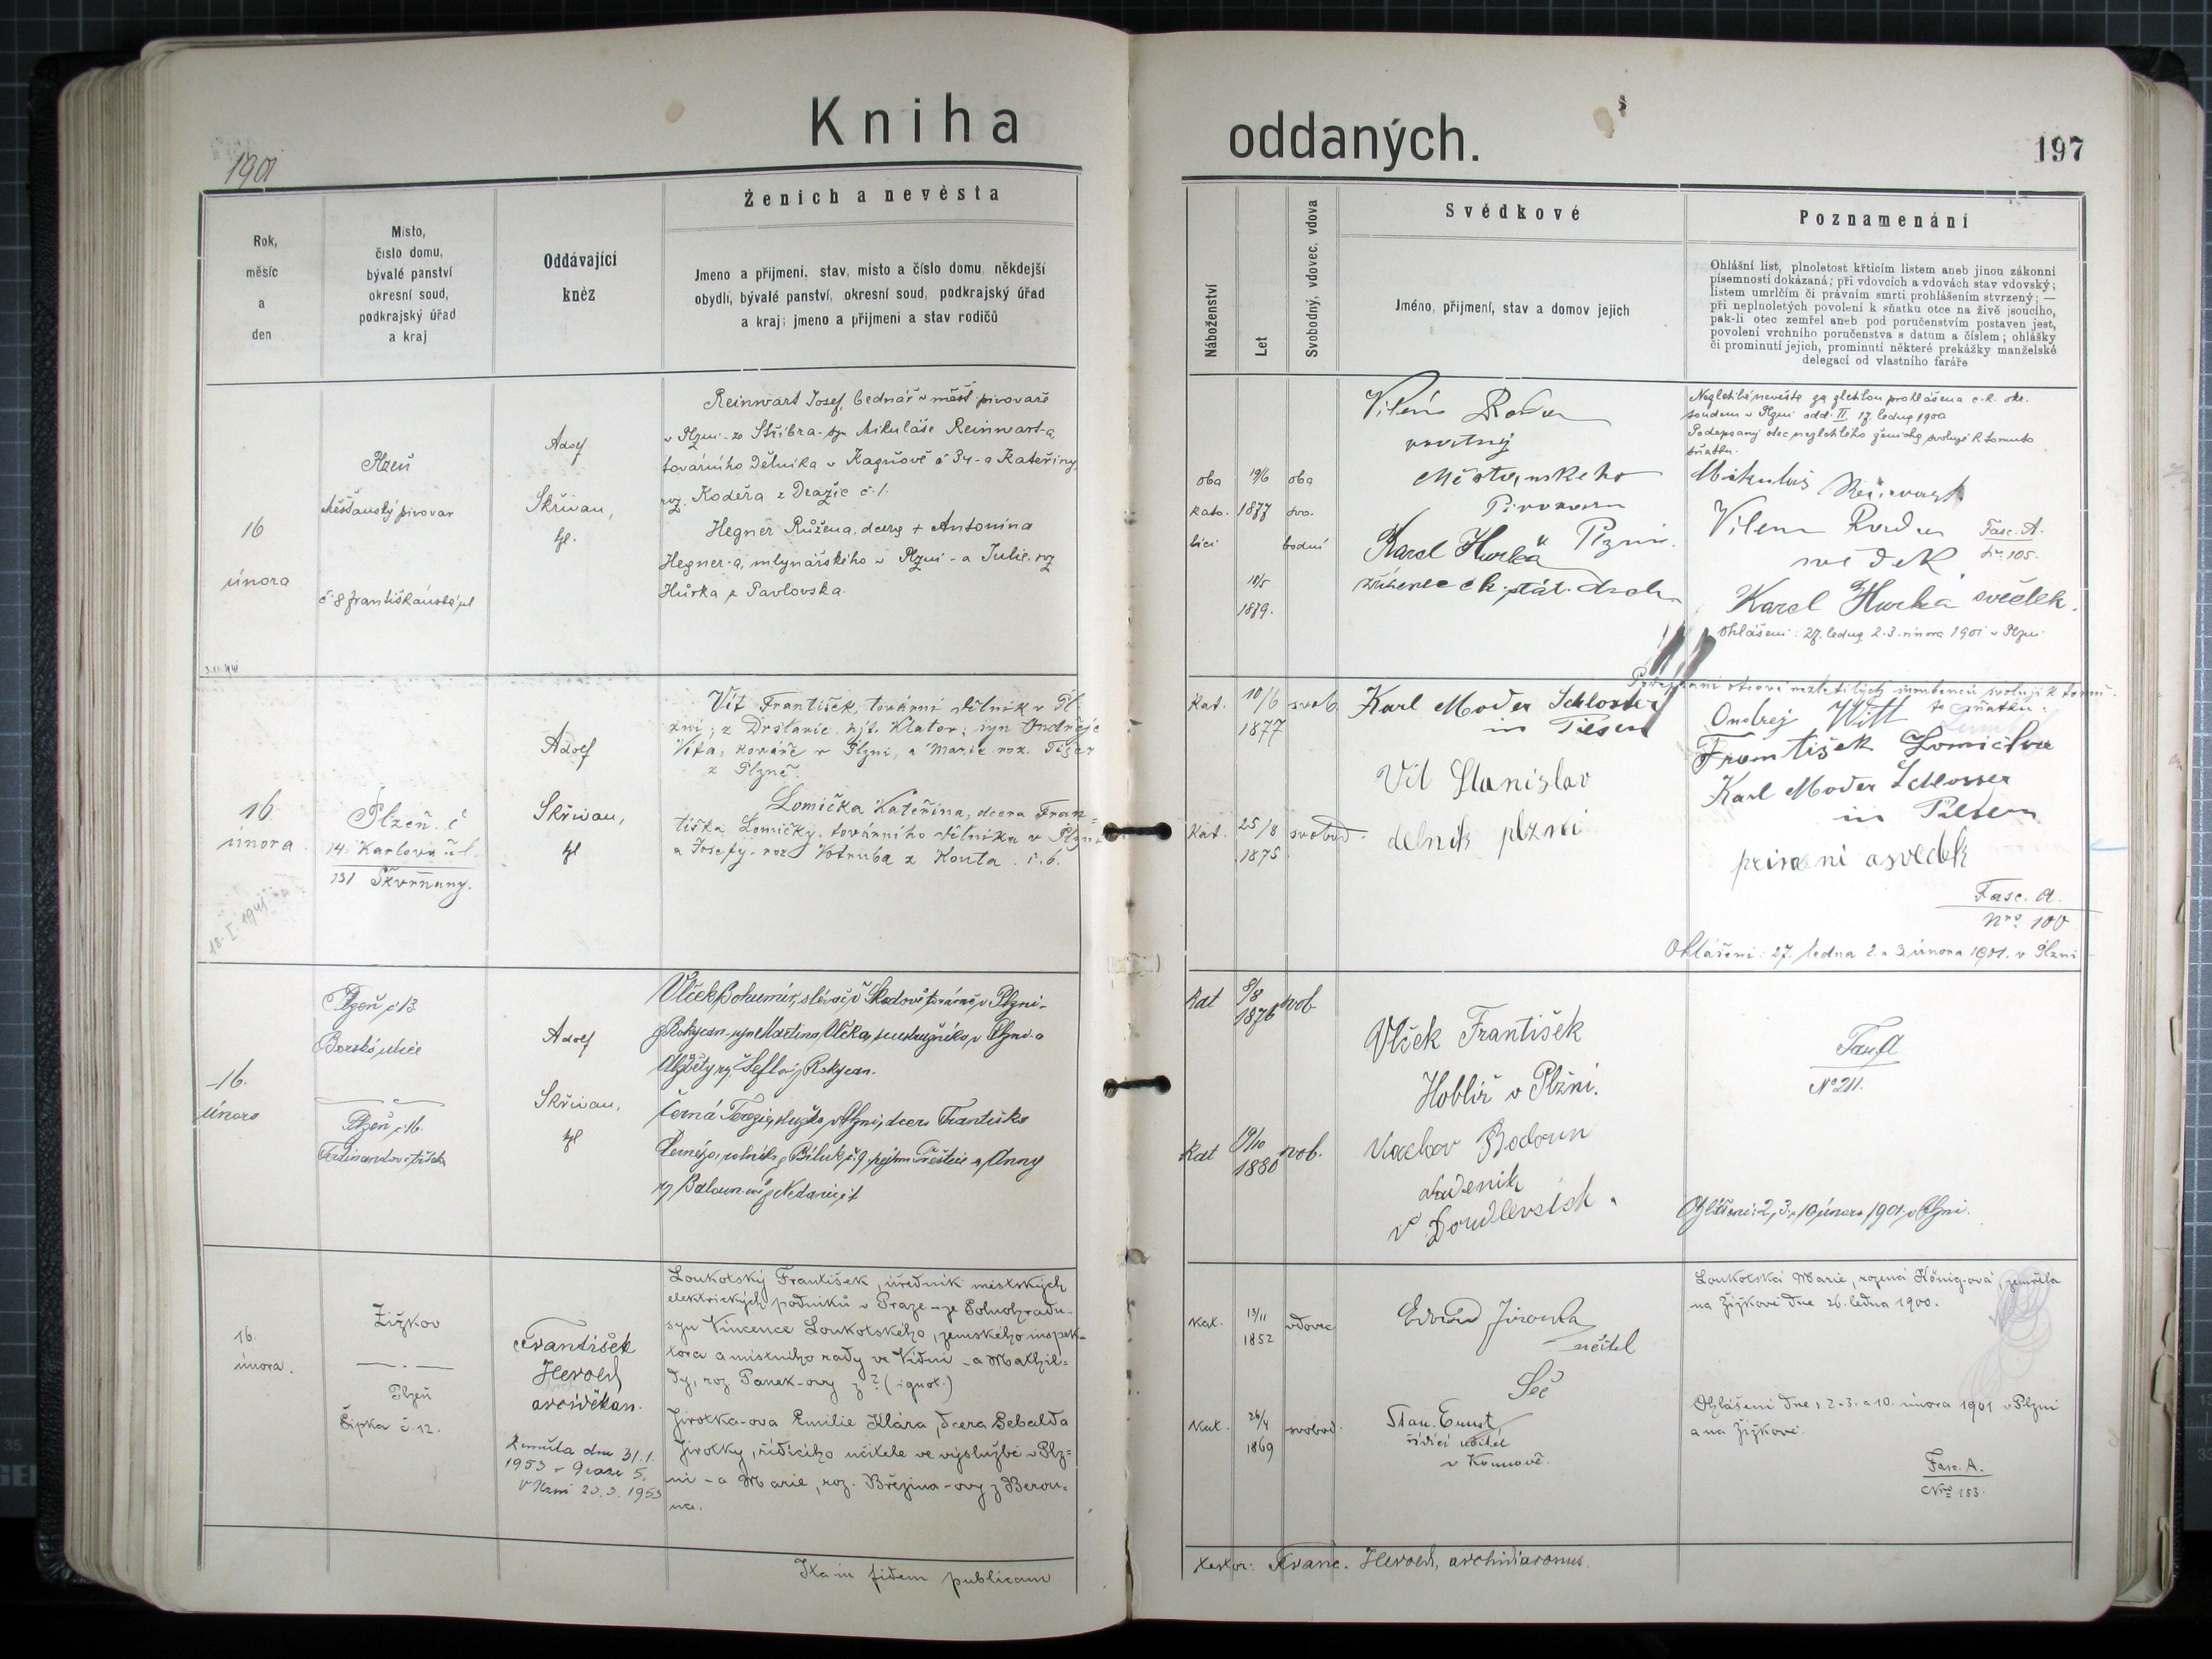 Kniha
oddaných.
1901
197
Rok,
měsíc
a
den
Místo,
číslo domu,
bývalé panství
okresní soud,
podkrajský úřad
a kraj
Oddávající
kněz
Ženich a nevěsta
Jmeno a přijmení, stav, místo a číslo domu, někdejší
obydlí, bývalé panství, okresní soud, podkrajský úřad
a kraj; jmeno a přijmeni a stav rodičů
Náboženství
Let
Svobodný, vdovec, vdova
Svědkové
Jméno, přijmení, stav a domov jejich
Poznamenání
Ohlášní list, plnoletost křticím listem aneb jinou zákonní
písemností dokázaná; při vdovcích a vdovách stav vdovský;
listem umrlčím či právním smrti prohlášením stvrzený; —
při neplnoletých povolení k sňatku otce na živě jsoucího,
pak-li otec zemřel aneb pod poručenstvím postaven jest,
povolení vrchního poručenstva s datum a číslem; ohlášky
či prominutí jejich, prominutí některé prekážky manželské
delegací od vlastního faráře
16
února
Plzeň
Měšťanský pivovar
č. 8 františkánská ul
Adolf
Skřivan,
kpl.
Reinwart Josef, bednář v měšť. pivovaře
v Plzni - ze Stříbra - syn Mikuláše Reinwart-a,
továrního dělníka v - a Kateřiny
roz. Kodeřa z Dražic č. 1.
Hegner Růžena, dcera + Antonína
Hegner-a, mlynářského v Plzni - a Julie, roz
Hůrka z Pavlovska.
oba
kato-
líci
19/6
1877
18/5
1879.
oba
svo-
bodni
Vilém
Městanskeho
Pivovaru
Plzni.
Karel Hurka
zřízenec
Nezletilé nevěstě za zletilou prohlášena c.k. okr.
soudem v Plzni odd. II. 17. ledna 1900
Podepsaný otec nezletilého ženicha svoluje k tomuto
sňatku.
Mikuláš
Vilem
svědek
Fasc. A.
Nro. 105.
Karel Hurka svědek.
Ohlášeni: 27. ledna, 2. 3. února 1901 v Plzni
16.
února.
Plzeň. č
14. Karlova ul.
131 Škvrňany.
18. I. 1941
Adolf
Skřivan,
kpl
Vít František, tovární dělník v Pl-
zni; z Drslavic, hjt. Klatov; syn Ondřeje
Víta, kováře v Plzni, a Marie roz. Fišer
z Plzně.
Lomička Kateřina, dcera Fran-
tiška Lomičky, továrního dělníka v Plzni
a Josefy - roz Votruba z Kouta. č. 6.
Kat.
10/6
1877
svob.
Kat.
25/8
1875
svobod.
Karl Moder Schlosser
in Pilsen
Vít Stanislav
delnik plzni
Podepsaní otcové nezletilých snoubenců svolují k tomu-
to sňatku.
Ondrej Witt
František Lomička
Karl Moder Schlosser
in Pilsen
asvedek
Fasc. A.
Nro 100
Ohlášeni: 27. ledna 2. a 3. února 1901. v Plzni
16.
února
Plzeň č 13
Borská ulice
Plzeň č 16.
Ferdinandova třída
Adolf
Skřivan,
kpl
Vlček Bohumír, slévač v Škodově továrně v Plzni -
z Rokycan - syn Martina Vlčka, soustružníka v Plzni - a
Alžběty roz. Šefl z Rokycan.
Černá Terezie, služka v Plzni, dcera Františka
Černého, rolníka z Biluk č. 9, hejtm Přeštice a Anny
roz Baloun-ové z Nedanic č. 1
Kat
8/8
1876
svob.
Kat
19/10
1880
svob.
Vlček František
Hoblíř v Plzni.
v Doudlevcích.
Fasc A
No 211.
Ohlášeni: 2, 3, a 10 února 1901 v Plzni.
16.
února.
Žižkov
Plzeň
Čipka č. 12.
František
Herold
arciděkan.
Zemřela dne 31.1.
1953 v Praze 5.
V Plzni 23.3. 1953
Loukotský František, úředník městských
elektrických podniků v Praze - ze
syn Vincence Loukotského, zemského inspek-
tora a místního rady ve Vídni - a Mathil-
dy, roz Panek-ovy z ? (ignot.)
Jirotka-ova Emilie Klára, dcera Sebalda
Jirotky, řídícího učitele ve výslužbě v Plz-
ni - a Marie, roz. Březina-ovy z Berou-
na.
Kat.
13/11
1852
vdovec
Kat.
26/4
1869
svobod.
Edvard Jirotka
učitel
Seč
Stan. Ernst
řídící učitel
Loukotská Marie, rozená König-ová, zemřela
na Žižkově dne 26. ledna 1900.
Ohlášeni dne: 2. 3. a 10. února 1901 v Plzni
a na Žižkově.
Fasc. A.
Nro 153.
Ita in fidem publicam
testor: Franc. Herold, archidiaconus.